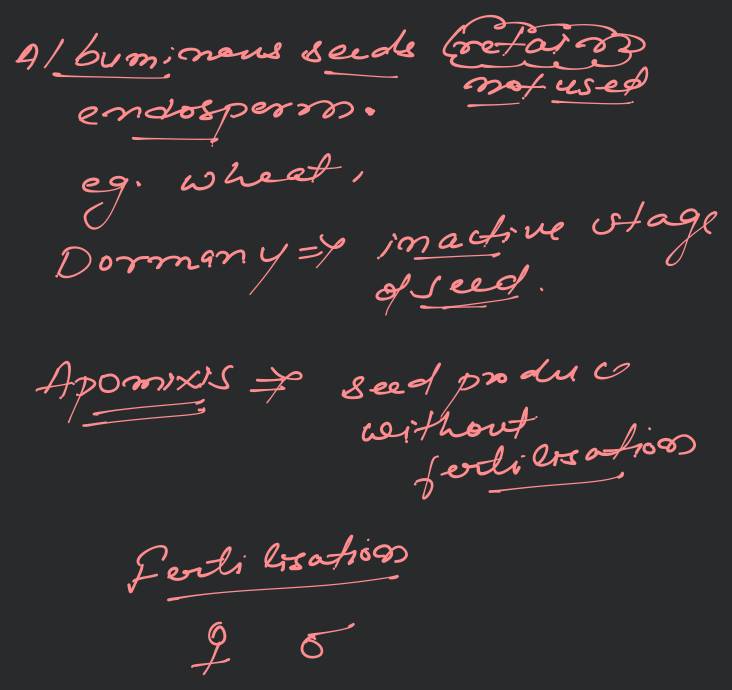 Albuminous seeds (retain)
not used
endosperm.
eg. wheat,
Dormany ⇒ inactive stage
of seed.
Apomixis ⇒ seed produc
without
fertilisation
Fertilisation
♀ ♂